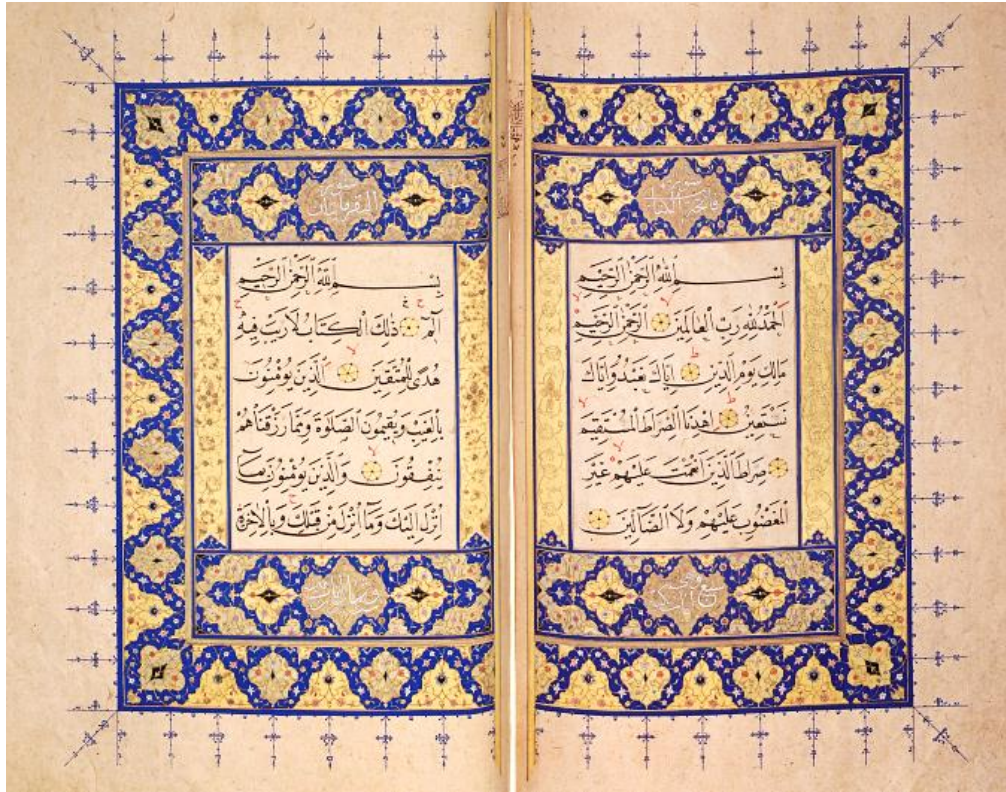 سورة
فاتحة الكتاب
بِسْمِ اللهِ الرَّحْمٰنِ الرَّحِيمِ
اَلْحَمْدُ لِلهِ رَبِّ الْعَالَمِينَ الرَّحْمٰنِ الرَّحِيمِ
مَالِكِ يَوْمِ الدِّينِ اِيَّاكَ نَعْبُدُ وَاِيَّاكَ
نَسْتَعِينُ اِهْدِنَا الصِّرَاطَ الْمُسْتَقِيمَ
صِرَاطَ الَّذِينَ اَنْعَمْتَ عَلَيْهِمْ غَيْرِ
الْمَغْضُوبِ عَلَيْهِمْ وَلَا الضَّالِّينَ
وهي
سبع آيات
سورة
بِسْمِ اللهِ الرَّحْمٰنِ الرَّحِيمِ
الٓمٓ ذٰلِكَ الْكِتَابُ لَا رَيْبَ فِيهِ
هُدًى لِلْمُتَّقِينَ اَلَّذِينَ يُؤْمِنُونَ
بِالْغَيْبِ وَيُقِيمُونَ الصَّلٰوةَ وَمِمَّا رَزَقْنَاهُمْ
يُنْفِقُونَ وَالَّذِينَ يُؤْمِنُونَ بِمَٓا
اُنْزِلَ اِلَيْكَ وَمَٓا اُنْزِلَ مِنْ قَبْلِكَ وَبِالْاٰخِرَةِ